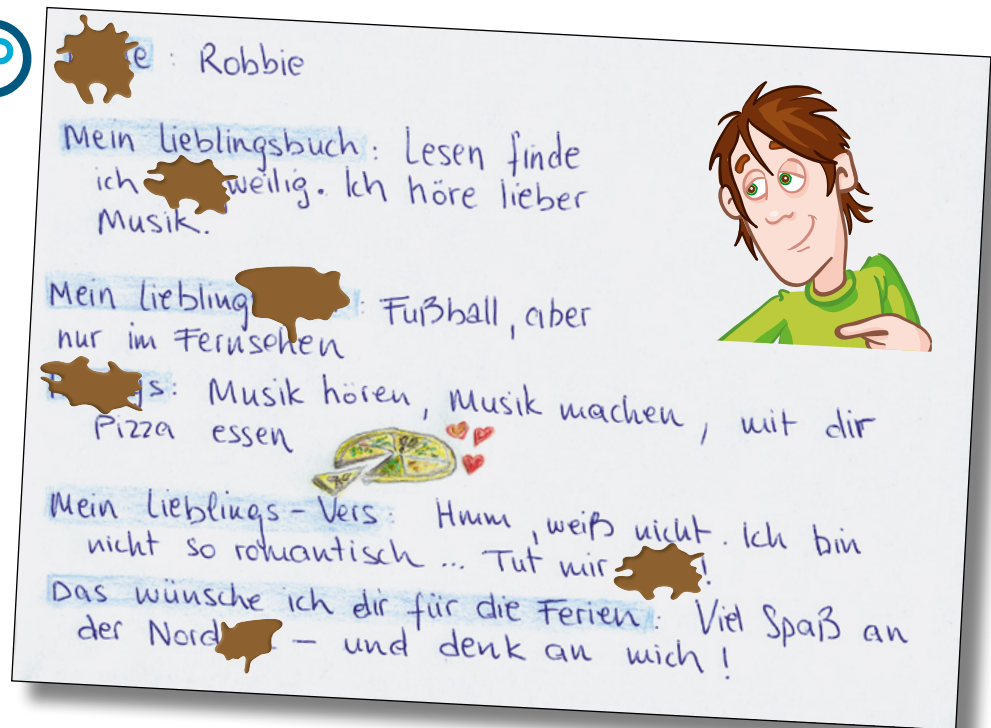 e : Robbie
Mein Lieblingsbuch : Lesen finde
ich weilig. Ich höre lieber
Musik.
Mein Liebling : Fußball, aber
nur im Fernsehen
s: Musik hören, Musik machen, mit dir
Pizza essen
Mein Lieblings-Vers: Hmm, weiß nicht. Ich bin
nicht so romantisch ... Tut mir !
Das wünsche ich dir für die Ferien: Viel Spaß an
der Nord – und denk an mich!